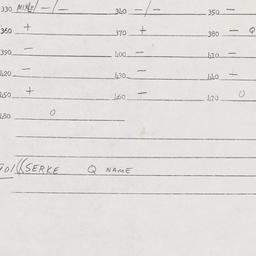 330 MIXE/-/- 340 -/- 350 -
360 + 370 + 380 - Q
390 - 400 - 410 -
420 - 430 - 440 -
450 + 460 - 470 0
480 0
701 ((SERKE Q NAME